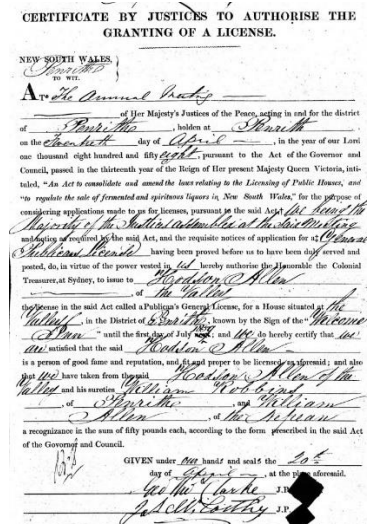 CERTIFICATE BY JUSTICES TO AUTHORISE THE
GRANTING OF A LICENSE.
NEW SOUTH WALES,
Penrith
TO WIT.
AT The Annual Meeting
of Her Majesty's Justices of the Peace, acting in and for the district
of Penrith, holden at Penrith
on the Twentieth day of April, in the year of our Lord
one thousand eight hundred and fifty eight, pursuant to the Act of the Governor and
Council, passed in the thirteenth year of the Reign of Her present Majesty Queen Victoria, inti-
tuled, "An Act to consolidate and amend the laws relating to the Licensing of Public Houses, and
"to regulate the sale of fermented and spirituous liquors in New South Wales," for the purpose of
considering applications made to us for licenses, pursuant to the said Act; We being the
Majority of the Justices assembled at the said Meeting
and notice as required by the said Act, and the requisite notices of application for a General
Publicans License having been proved before us to have been duly served and
posted, do, in virtue of the power vested in us hereby authorise the Honorable the Colonial
Treasurer, at Sydney, to issue to Hodson Allen
of the Valley
the license in the said Act called a Publican's General License, for a House situated at the
Valley, in the District of Penrith, known by the Sign of the "Welcome
Inn" until the first day of July 1859; and we do hereby certify that we
are satisfied that the said Hodson Allen
is a person of good fame and reputation, and fit and proper to be licensed as aforesaid; and also
that we have taken from the said Hodson Allen of the
Valley and his sureties William Robbins
, of Penrith and William
Allen, of the Nepean
a recognizance in the sum of fifty pounds each, according to the form prescribed in the said Act
of the Governor and Council.
GIVEN under our hands and seals the 20th
day of April, at the place aforesaid.
J.P.
J.P.